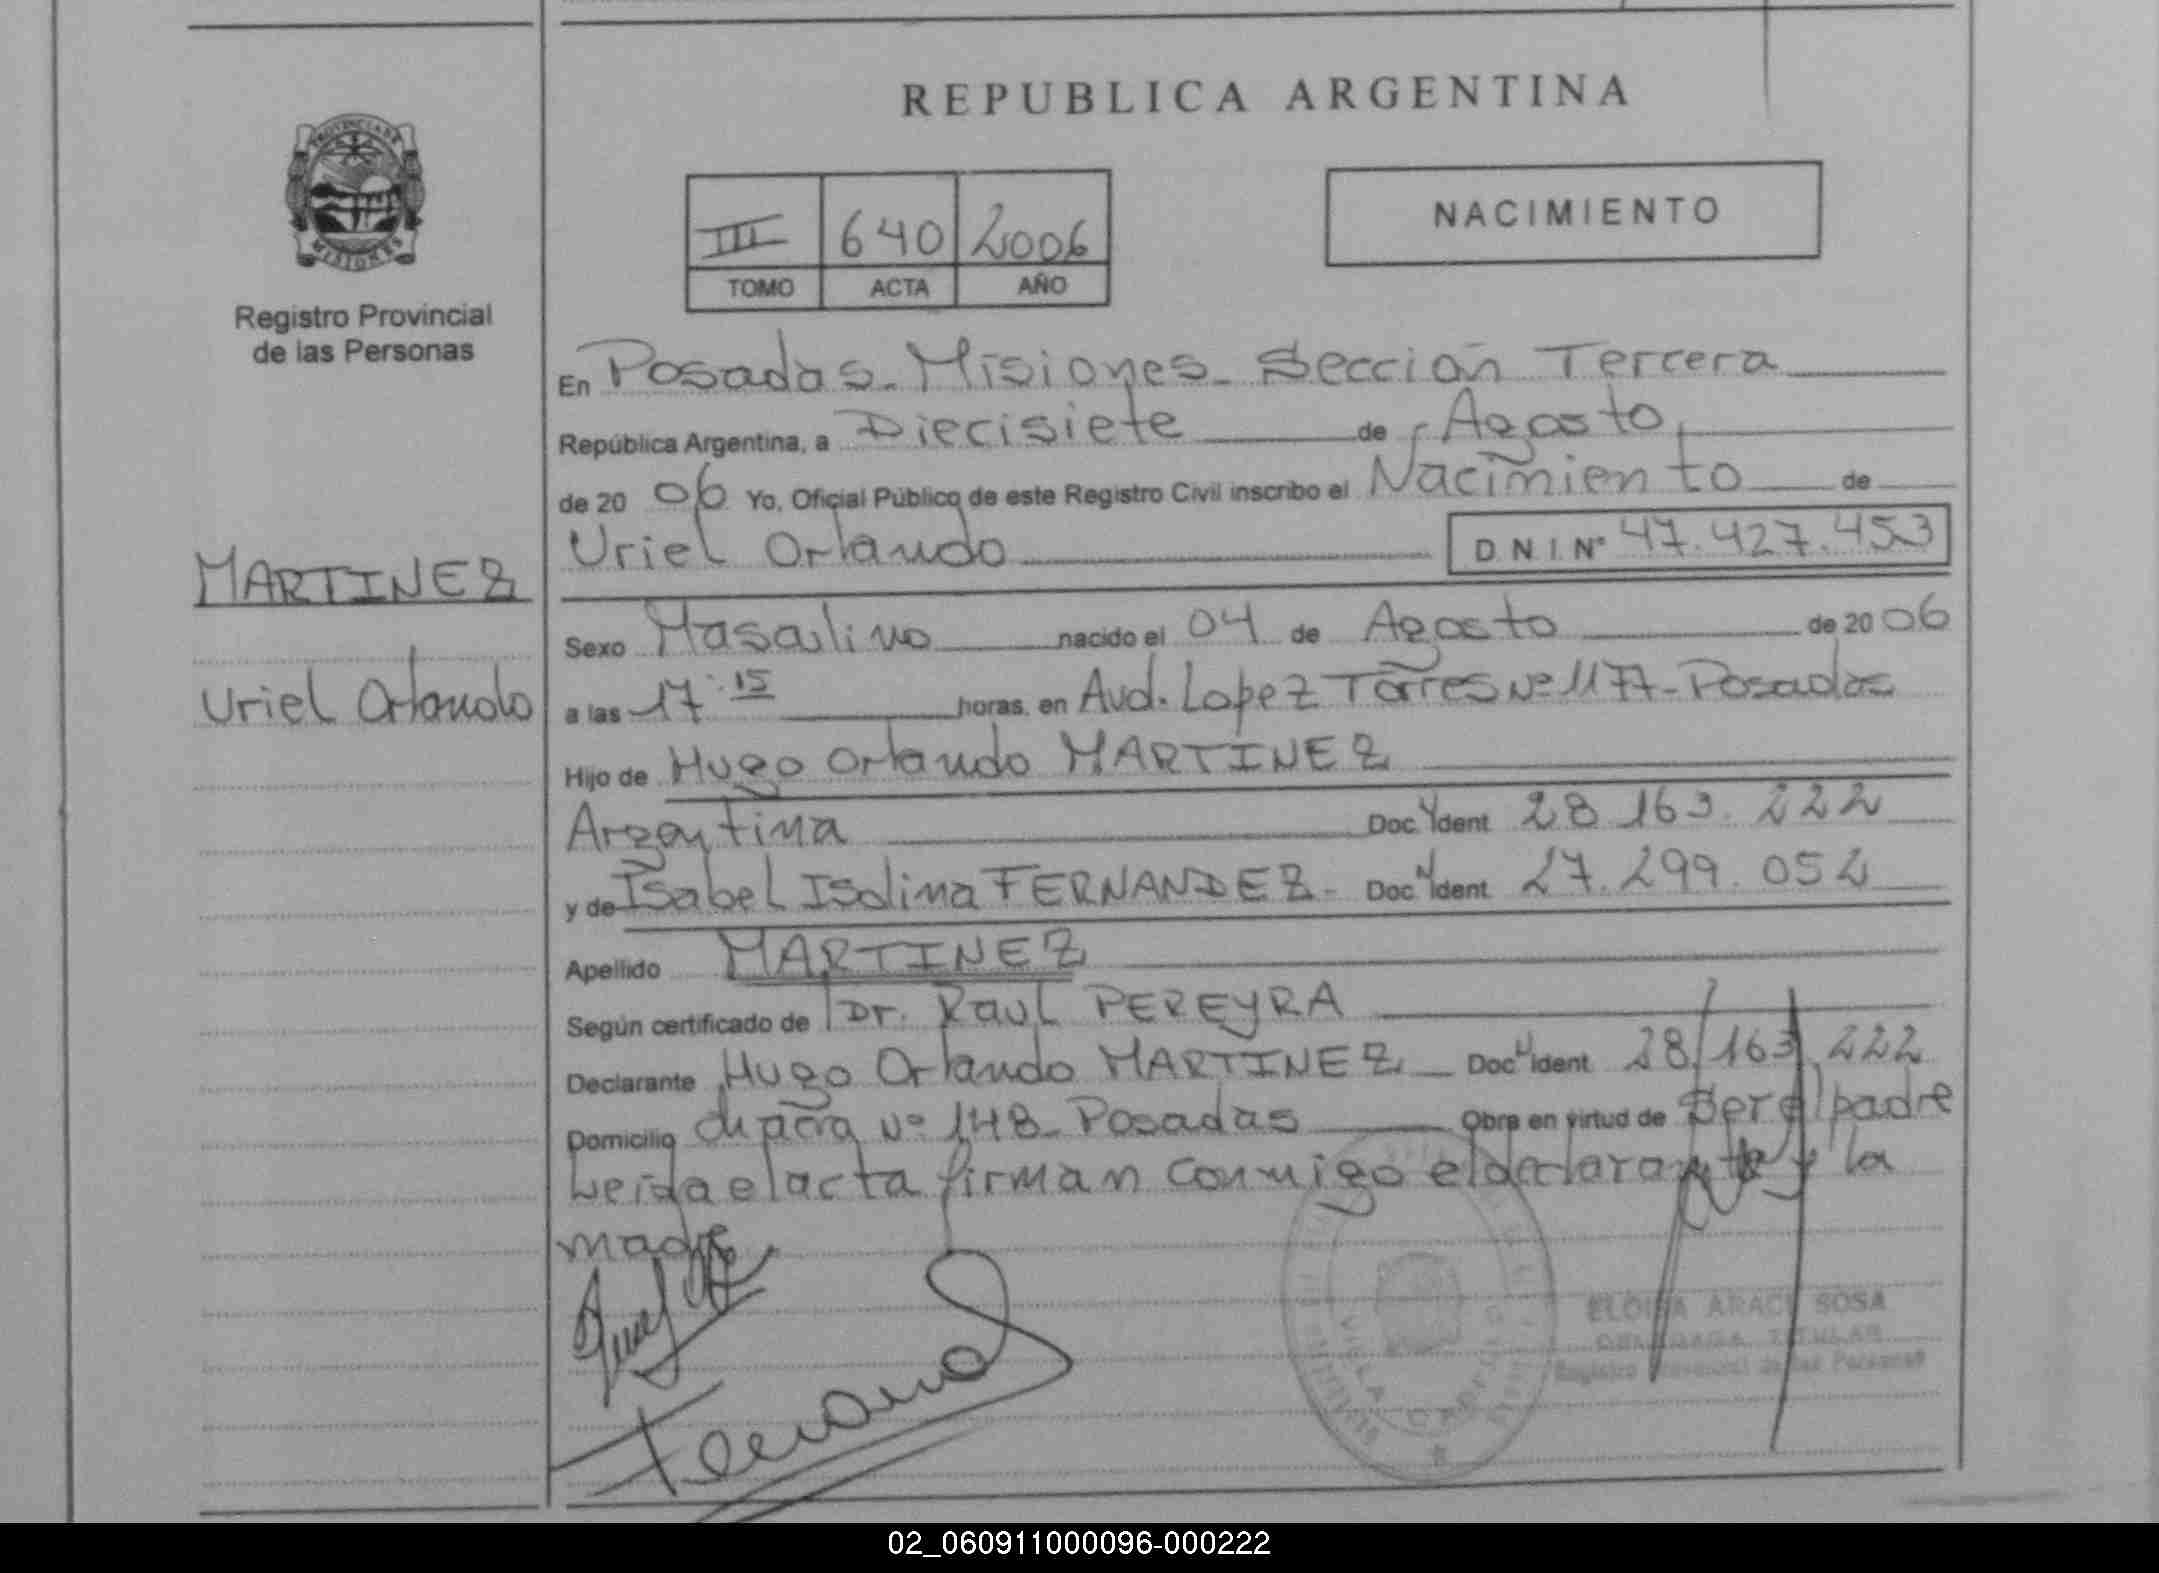 REPUBLICA ARGENTINA
PROVINCIA DE
MISIONES
Registro Provincial
de las Personas
III 640 2006
TOMO ACTA AÑO
NACIMIENTO
MARTINEZ
Uriel Orlando
En Posadas - Misiones - Sección Tercera
República Argentina, a Diecisiete de Agosto
de 2006 Yo, Oficial Público de este Registro Civil inscribo el Nacimiento de
Uriel Orlando D.N.I. Nº 47.427.453
Sexo Masculino nacido el 04 de Agosto de 2006
a las 17:15 horas, en Avd. Lopez Torres Nº 1177 - Posadas
Hijo de Hugo Orlando MARTINEZ
Argentina Doc. Ident 28.163.222
y de Isabel Isolina FERNANDEZ - Doc. Ident 27.299.052
Apellido MARTINEZ
Según certificado de Dr. Raul PEREYRA
Declarante Hugo Orlando MARTINEZ Doc. Ident 28.163.222
Domicilio Chacra Nº 148 - Posadas Obra en virtud de Ser el padre
Leida el acta firman conmigo el declarante y la
madre
ELOISA ARACI SOSA
TITULAR
Registro Provincial de las Personas
02_060911000096-000222